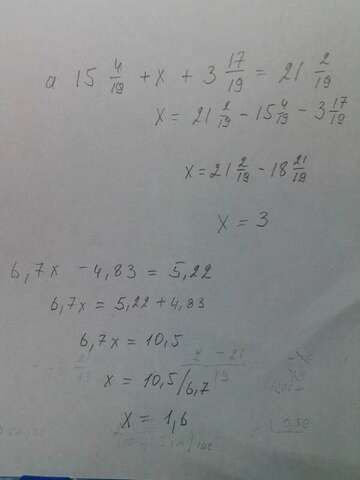 а 15 4/19 + x + 3 17/19 = 21 2/19
x = 21 2/19 - 15 4/19 - 3 17/19
x = 21 2/19 - 18 21/19
x = 3
6,7x - 4,83 = 5,22
6,7x = 5,22 + 4,83
6,7x = 10,5
x = 10,5/6,7
x = 1,6